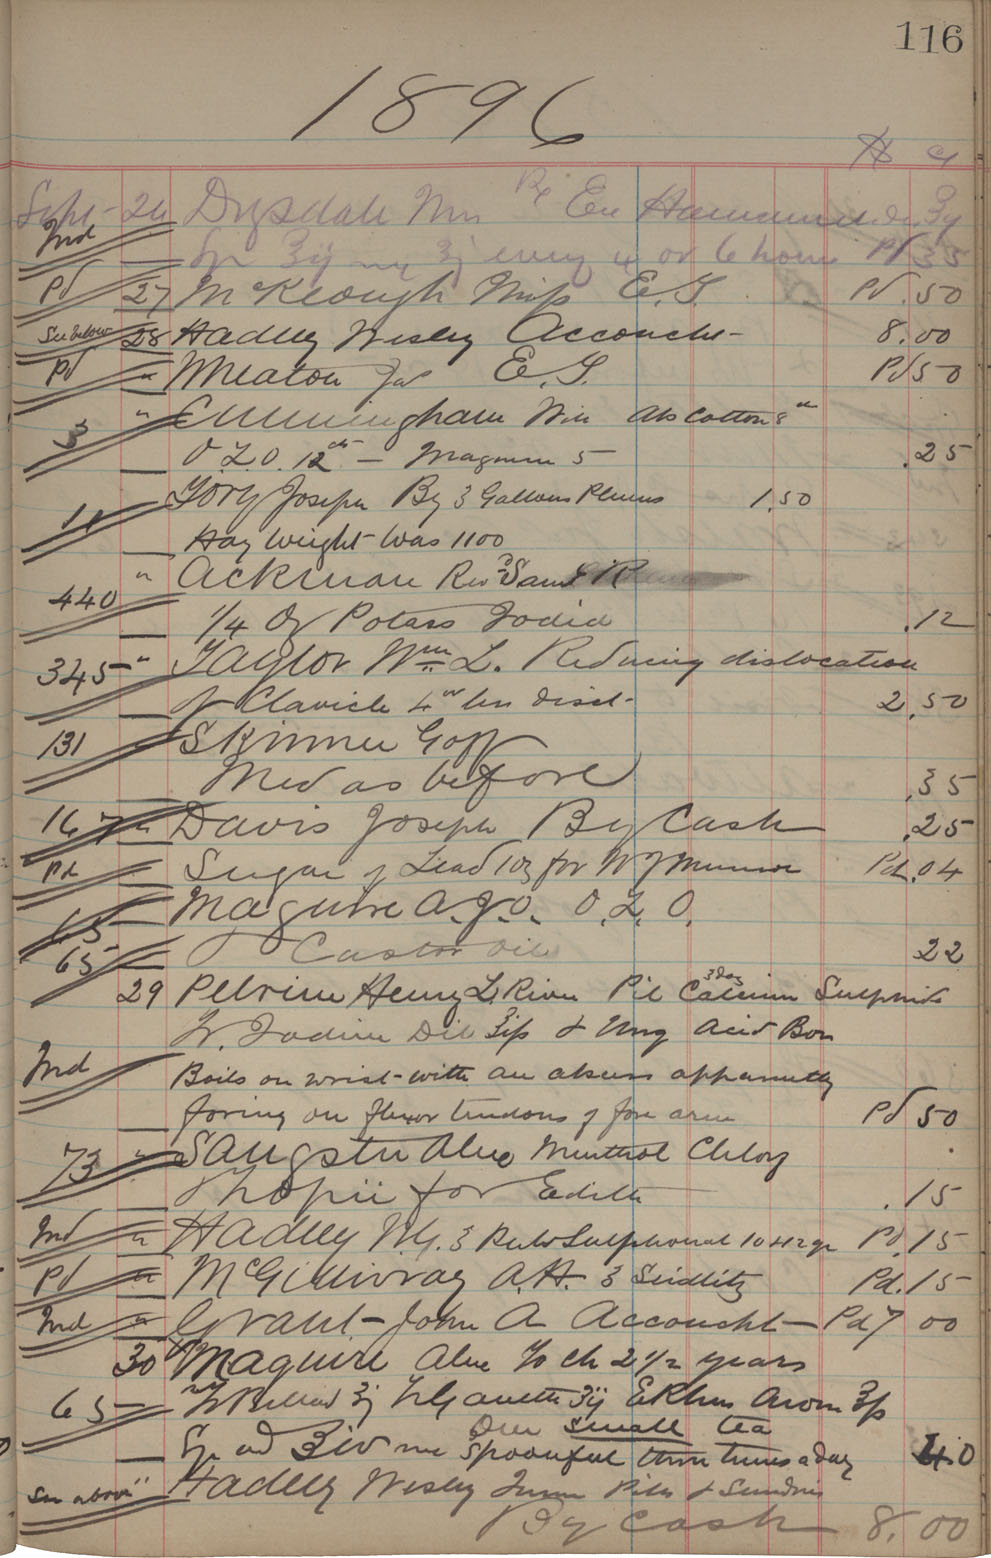 116
1896
$ c
Sept 26 Drysdale Wm Rx
Ind every 4 or 6 hours Pd 35
Pd 27 McKeough Miss E. T Pd .50
See below 28 Hadley Wesley Accoucht- 8.00
Pd " Meaton Jas E. T. Pd 50
3 " Cunningham Wm Abs Cotton 8
O. L. O. 12 — Magnesia 5 .25
Tory Joseph By 3 Gallons Plums 1.50
Hay weight was 1100
440 " Ackman Rev Saml R
1/4 Oz Potass Iodid .12
345 " Taylor Wm L. Reducing dislocation
of Clavicle 4 less disct- 2.50
131 Skinner Goff
Med as before .35
167 " Davis Joseph By Cash .25
Pd Sugar of Lead 1 oz for W J Munroe Pd. .04
65 Maguire A. J. O. O. L. O.
65 Castor Oil 22
29 Pelrine Henry L. River Pil Calcium Sulphide
Tr. Iodine Dil & Ung Acid Bor
Ind Boils on wrist with an abscess apparently
foring on flexor tendons of fore arm Pd 50
73 " Sangster Alex Menthol Chlor
for Edith .15
Ind " Hadley W. G. 3 Sulphonal 10 Pd .15
Pd " McGillivray A. H. 3 Seidlitz Pd. .15
Ind " Grant John A Accoucht — Pd 7 00
30 Maguire Alex To ch 2 1/2 years
65 Arom
One small tea
spoonful three times a day 40
See above " Hadley Wesley Pills & Sundries
By Cash 8.00